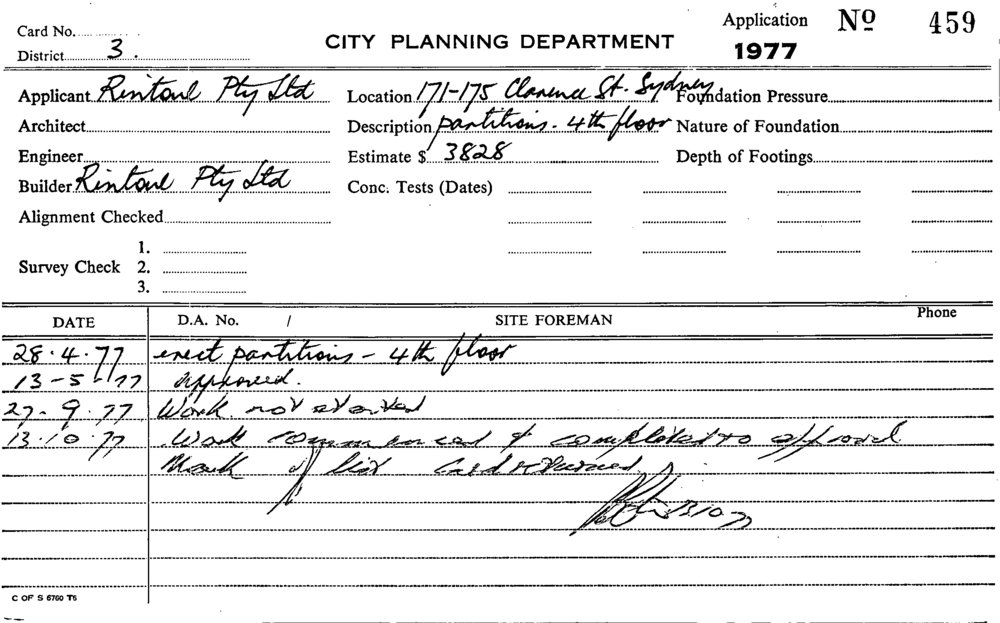 Card No.
District 3.
CITY PLANNING DEPARTMENT
Application No 459
1977
Applicant Rintoul Pty Ltd
Location 171-175 Clarence St. Sydney
Foundation Pressure
Architect
Description partitions - 4th floor
Nature of Foundation
Engineer
Estimate $ 3828
Depth of Footings
Builder Rintoul Pty Ltd
Conc. Tests (Dates)
Alignment Checked
Survey Check 1.
2.
3.
DATE D.A. No. / SITE FOREMAN Phone
28.4.77 erect partitions - 4th floor
13-5-77 approved.
27.9.77 Work not started
13.10.77 Work commenced & completed to approval
Mark off list Card returned
13 10 77
C OF S 6760 T5